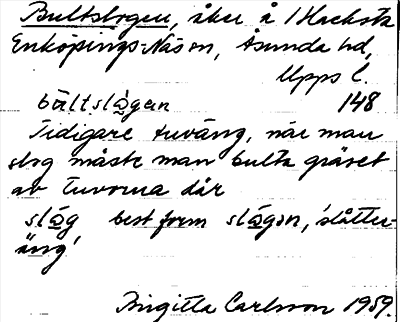 Bultslogen, åker å 1 Hacksta
Enköpings-Näs sn, Åsunda hd,
Upps l.
bẁltslàgan 148
Tidigare tuväng, när man
slog måste man bulta gräset
av tuvorna där
slǻg best form slǻgən, 'slåtter-
äng'
Birgitta Carlsson 1959.